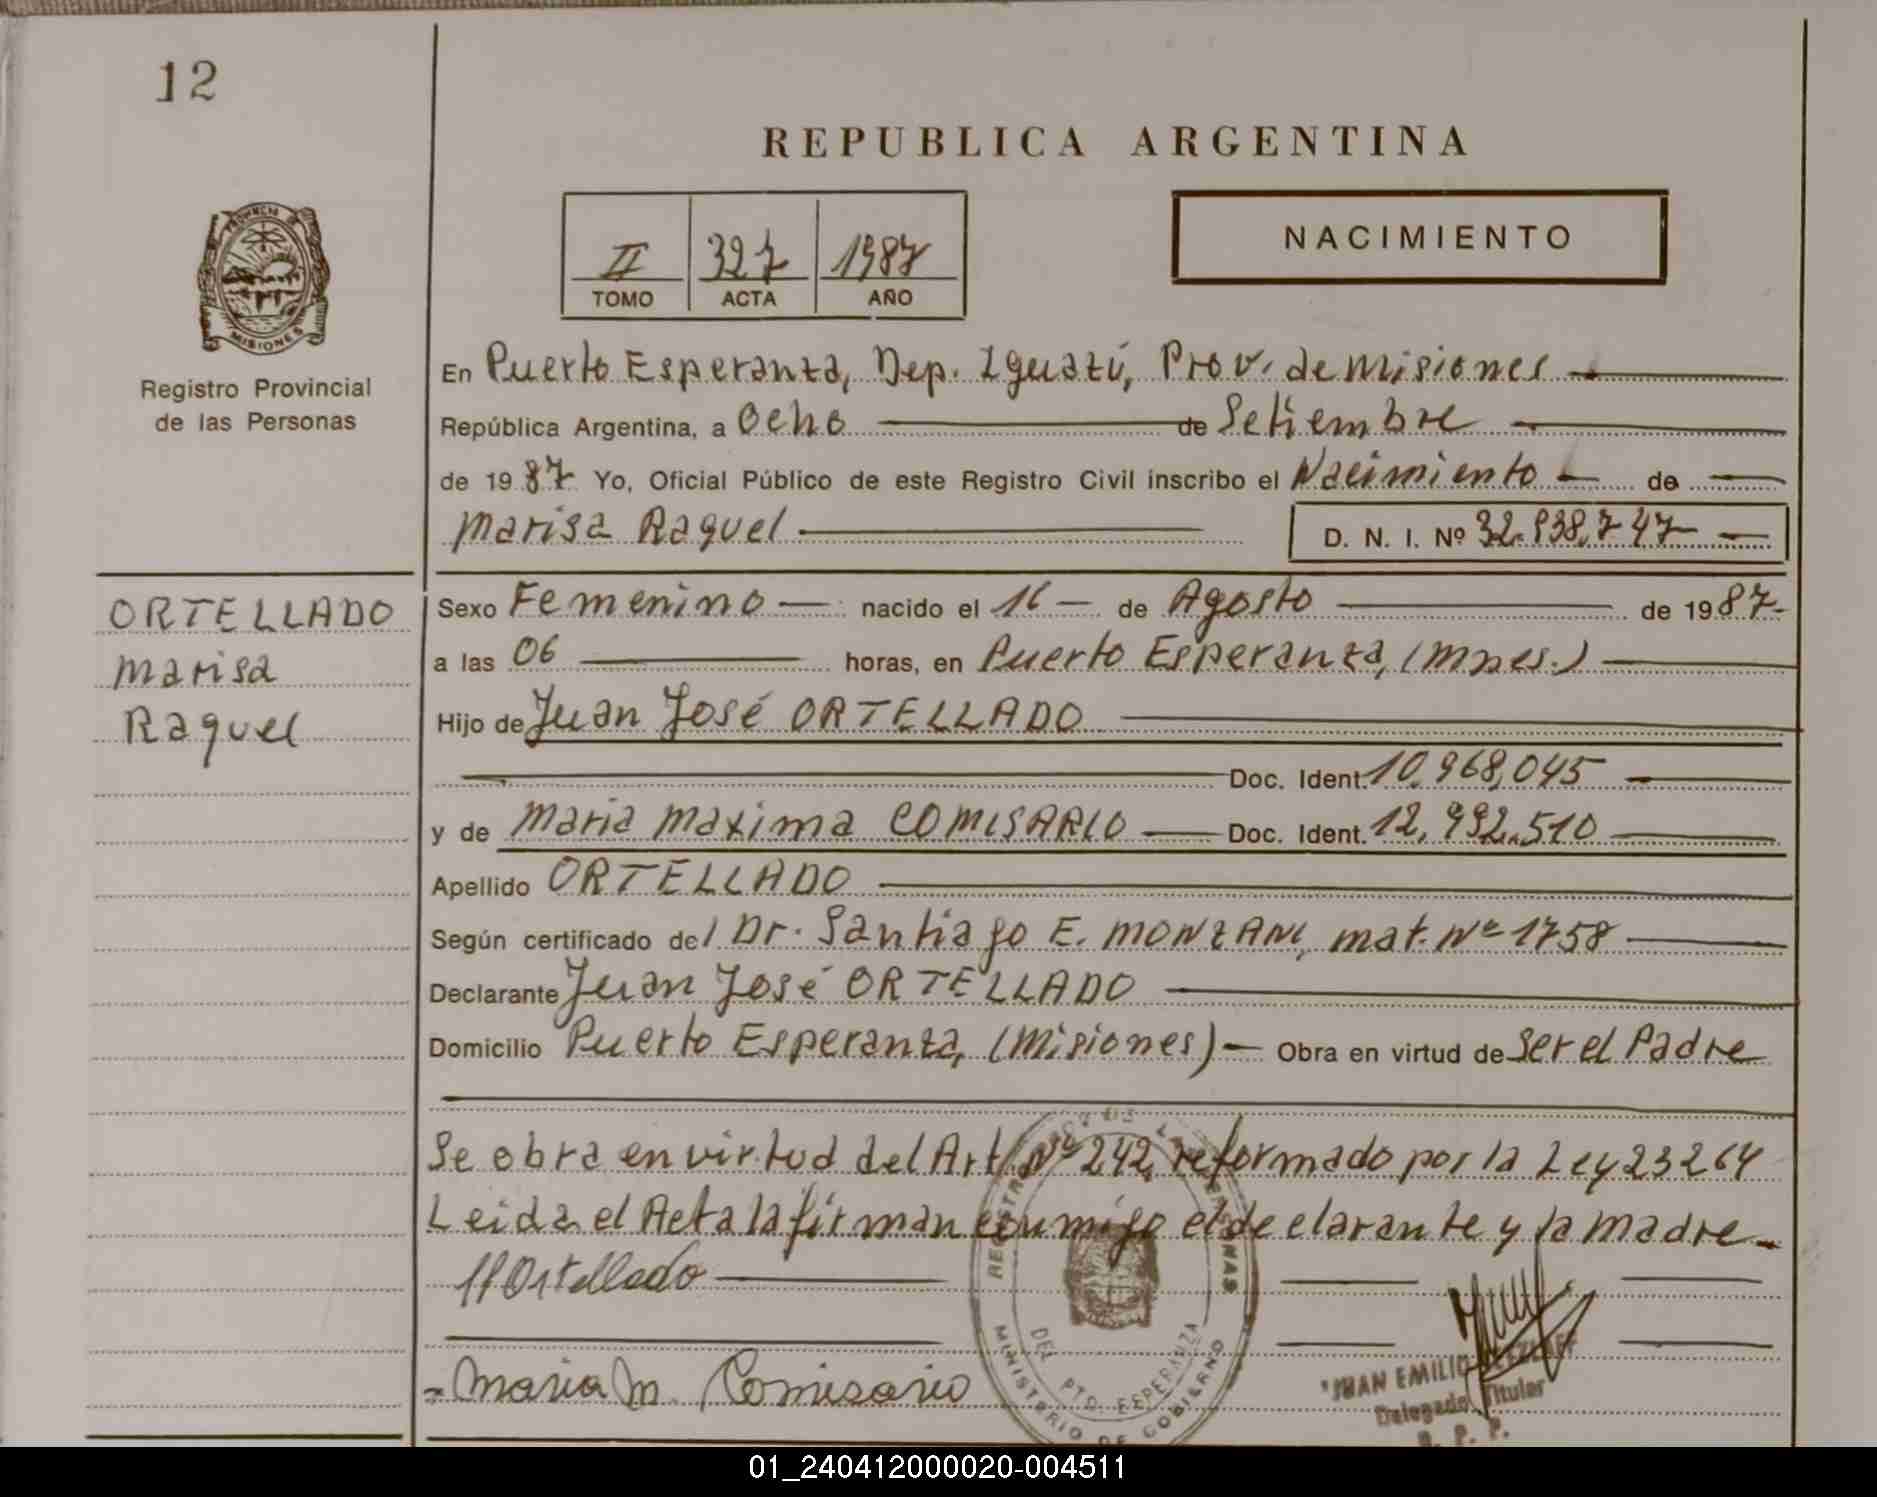 12
REPUBLICA ARGENTINA
II 327 1987
TOMO ACTA AÑO
NACIMIENTO
PROVINCIA DE
MISIONES
Registro Provincial
de las Personas
En Puerto Esperanza, Dep. Iguazú, Prov. de Misiones
República Argentina, a Ocho de Setiembre
de 1987 Yo, Oficial Público de este Registro Civil inscribo el Nacimiento de
Marisa Raquel D. N. I. Nº 32.938.747
ORTELLADO
Marisa
Raquel
Sexo Femenino nacido el 16 de Agosto de 1987
a las 06 horas, en Puerto Esperanza, (Mnes.)
Hijo de Juan José ORTELLADO
Doc. Ident. 10.968,045
y de Maria Maxima COMISARIO Doc. Ident. 12.992.510
Apellido ORTELLADO
Según certificado del Dr. Santiago E. MONZANI, mat. Nº 1758
Declarante Juan José ORTELLADO
Domicilio Puerto Esperanza, (Misiones) Obra en virtud de Ser el Padre
Se obra en virtud del Art. Nº 242, reformado por la Ley 23264
Leida el Acta la firman conmigo el declarante y la madre
Ortellado
Maria M. Comisario
MINISTERIO DE GOBIERNO
DEL PTO. ESPERANZA
JUAN EMILIO
Delegado Titular
R. P. P.
01_240412000020-004511